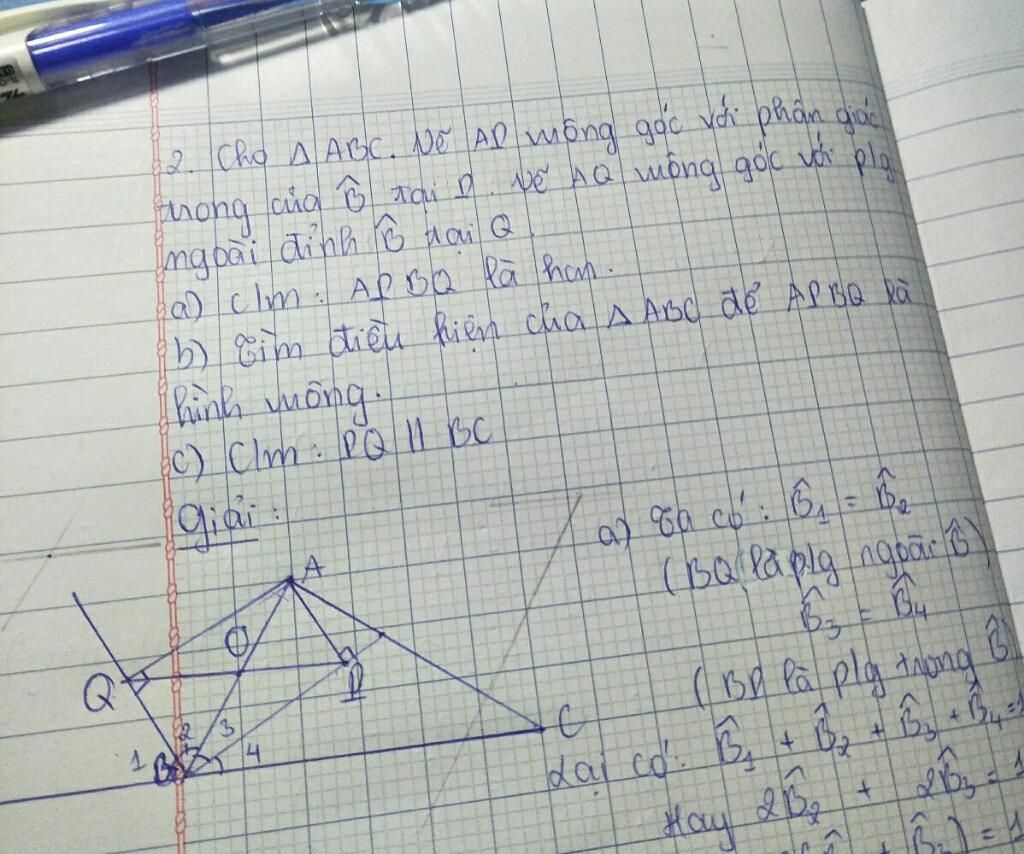 2. Cho △ ABC. Vẽ AP vuông góc với phân giác
trong của B̂ tại P. Vẽ AQ vuông góc với p/g
ngoài đỉnh B̂ tại Q.
a) C/m : APBQ là hcn.
b) Tìm điều kiện của △ ABC để APBQ là
hình vuông.
c) C/m : PQ // BC
Giải :
a) Ta có : B̂₁ = B̂₂
(BQ là p/g ngoài B̂)
B̂₃ = B̂₄
(BP là p/g trong B̂)
Lại có: B̂₁ + B̂₂ + B̂₃ + B̂₄ = 1
Hay 2B̂₂ + 2B̂₃ = 1
) = 1
A
O
Q
P
C
2
3
1
B
4